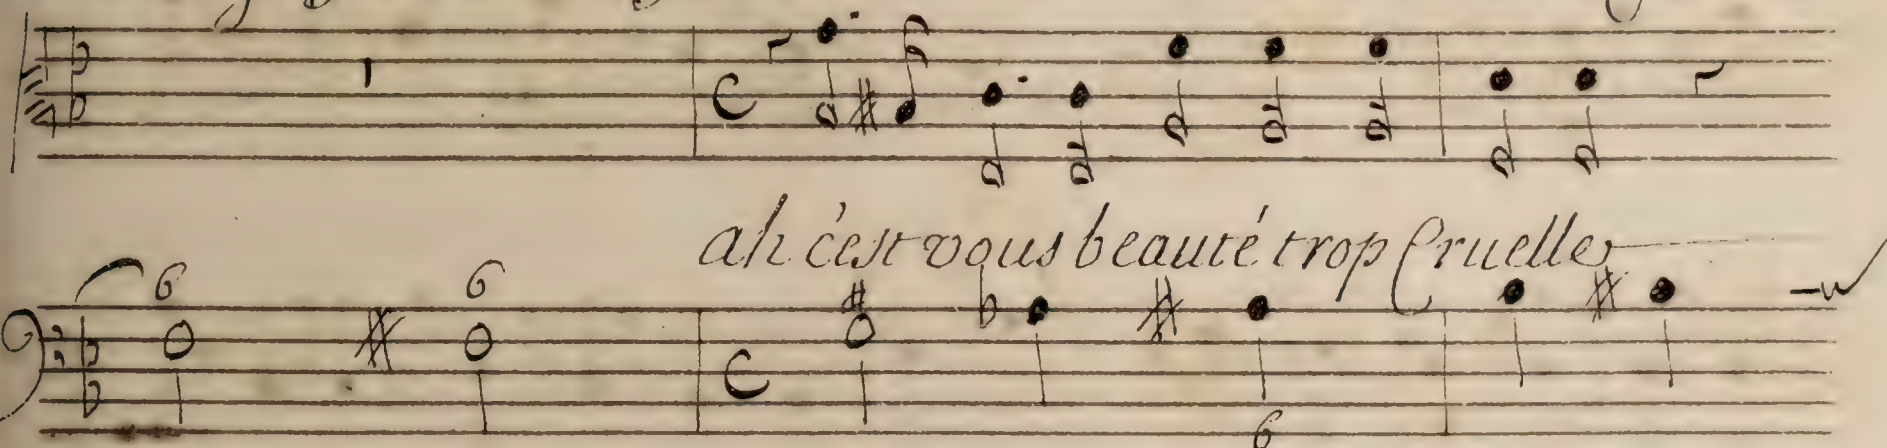 ah c'est vous beauté trop Cruelle
6 6
6